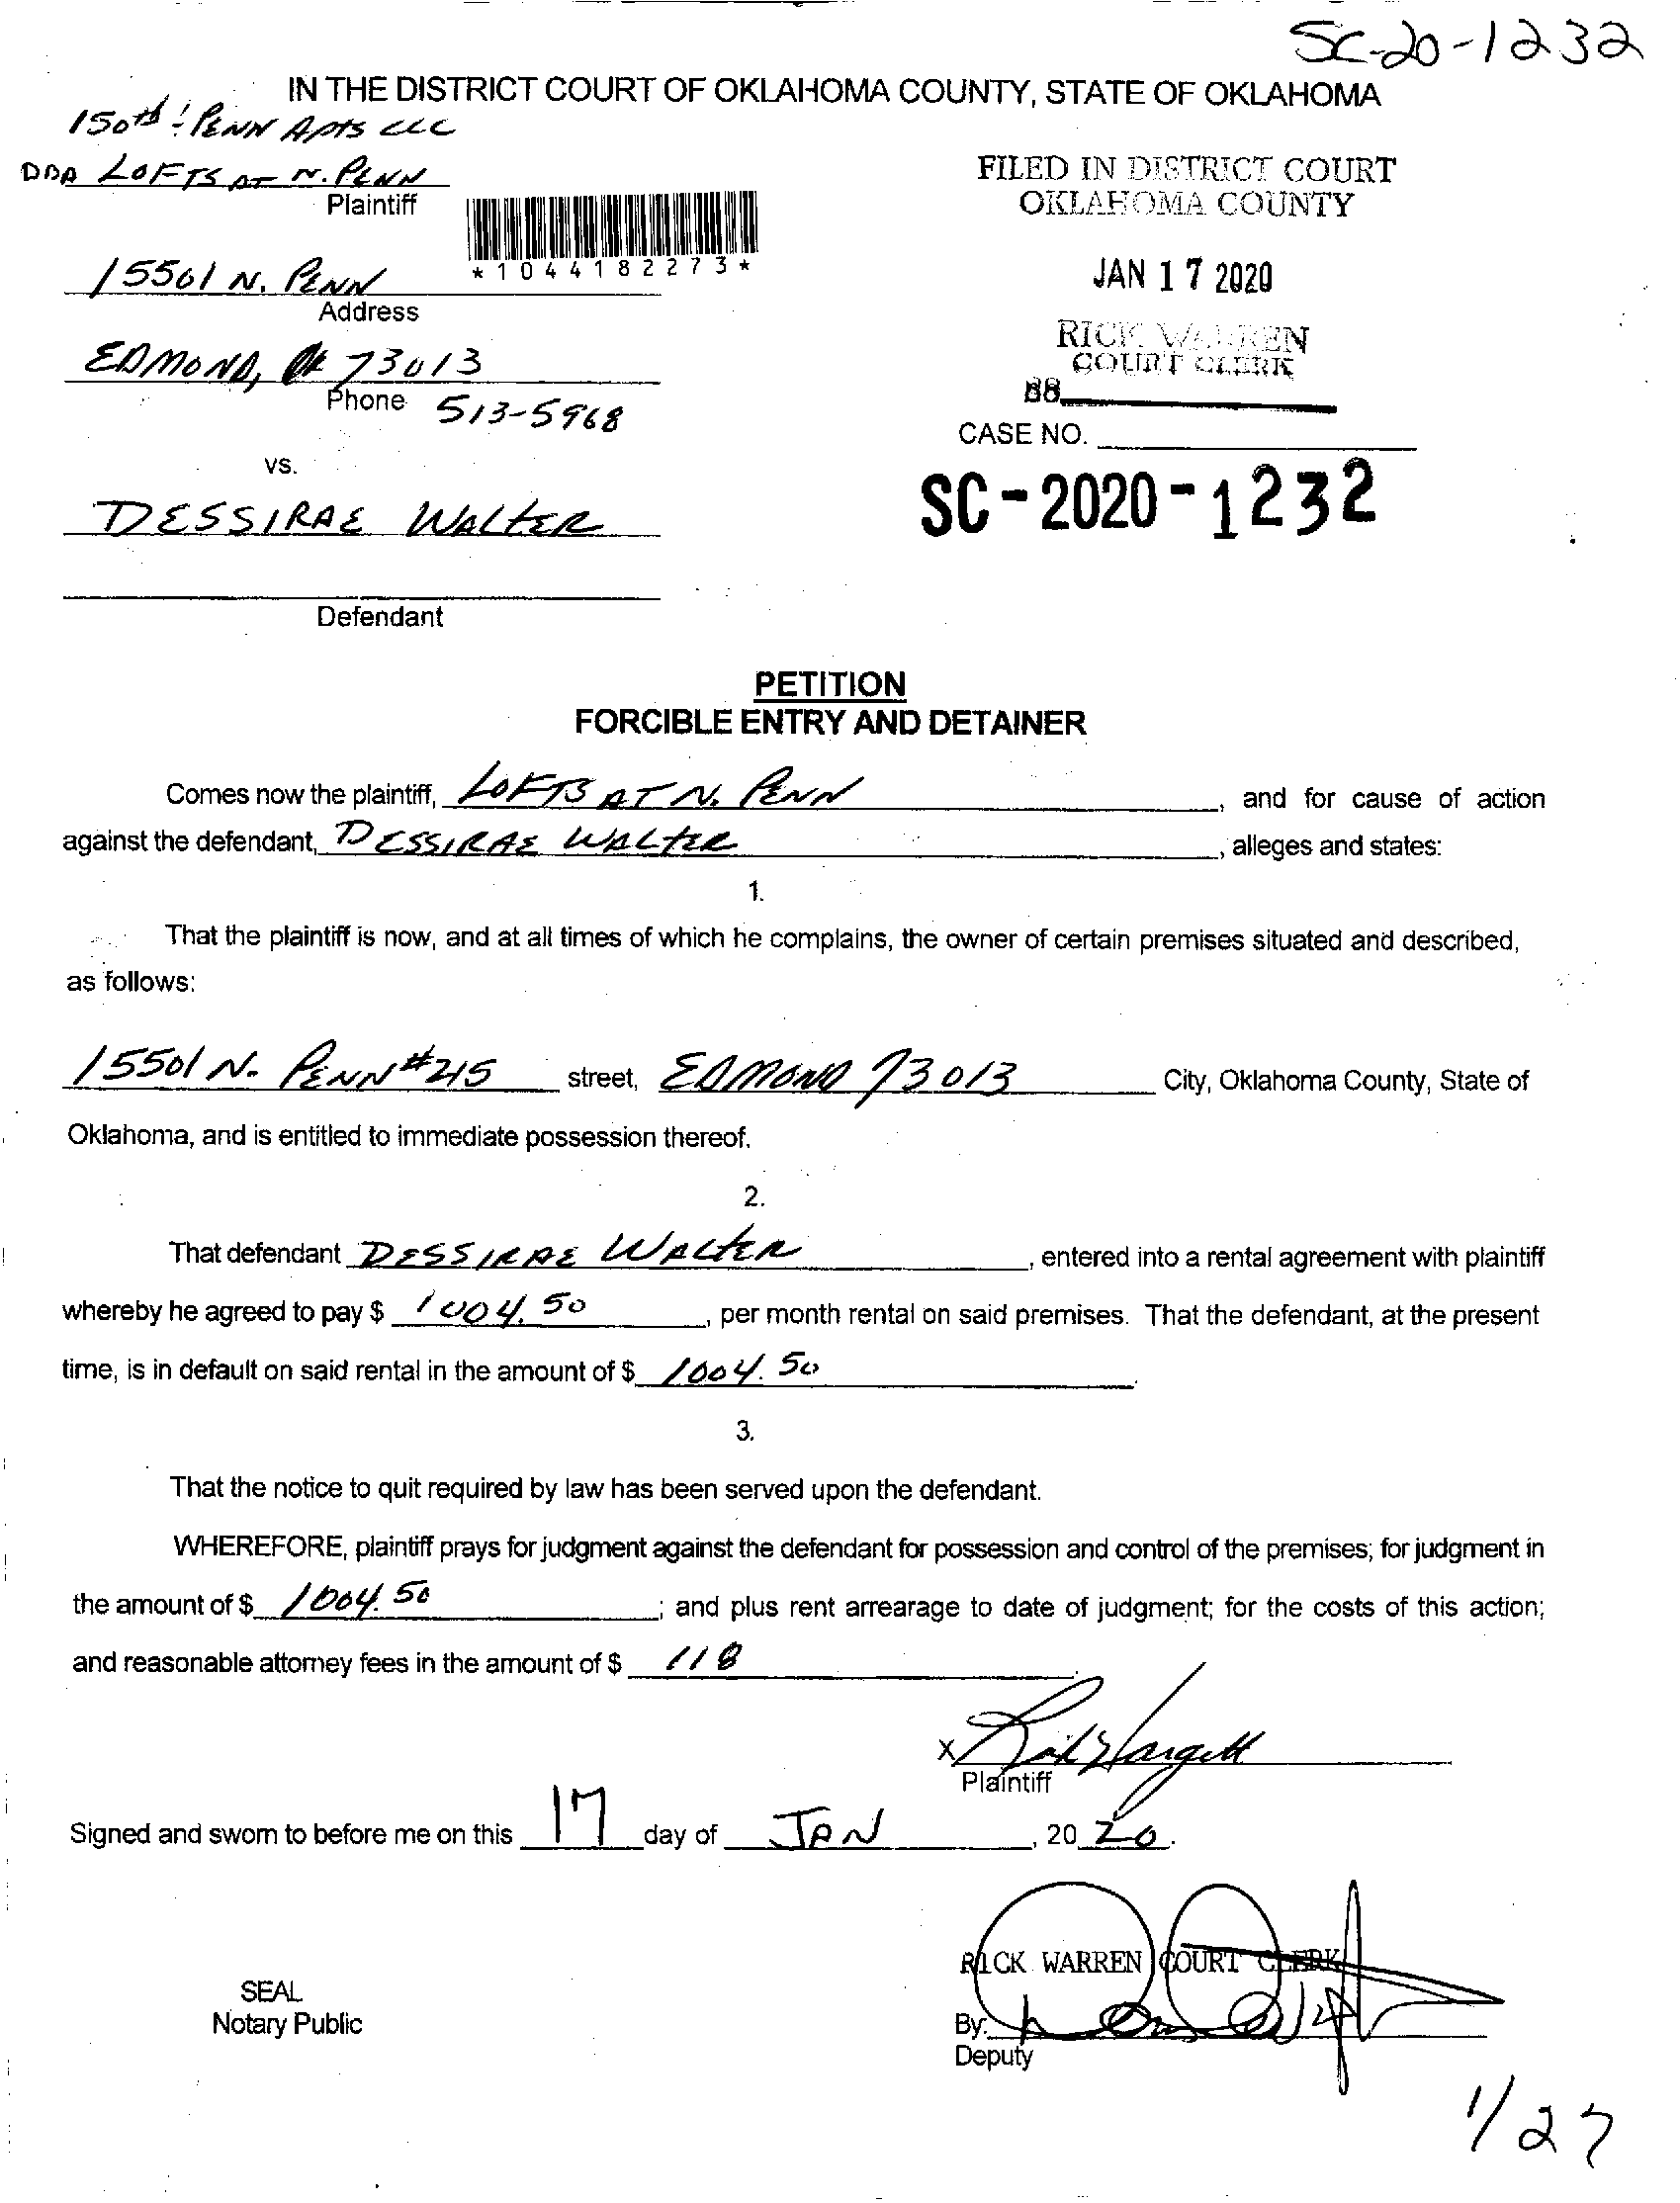 SC-20-1232
IN THE DISTRICT COURT OF OKLAHOMA COUNTY, STATE OF OKLAHOMA
150th & PENN APTS LLC
DBA LOFTS AT N. PENN
Plaintiff
FILED IN DISTRICT COURT
OKLAHOMA COUNTY
*1044182273*
15501 N. PENN
Address
JAN 17 2020
RICK WARREN
COURT CLERK
EDMOND, OK 73013
Phone 513-5968
88
CASE NO.
vs.
SC-2020-1232
DESSIRAE WALTER
Defendant
PETITION
FORCIBLE ENTRY AND DETAINER
Comes now the plaintiff, LOFTS AT N. PENN, and for cause of action
against the defendant, DESSIRAE WALTER, alleges and states:
1.
That the plaintiff is now, and at all times of which he complains, the owner of certain premises situated and described,
as follows:
15501 N. PENN #215 street, EDMOND 73013 City, Oklahoma County, State of
Oklahoma, and is entitled to immediate possession thereof.
2.
That defendant DESSIRAE WALTER, entered into a rental agreement with plaintiff
whereby he agreed to pay $ 1004.50, per month rental on said premises. That the defendant, at the present
time, is in default on said rental in the amount of $ 1004.50.
3.
That the notice to quit required by law has been served upon the defendant.
WHEREFORE, plaintiff prays for judgment against the defendant for possession and control of the premises; for judgment in
the amount of $ 1004.50; and plus rent arrearage to date of judgment; for the costs of this action;
and reasonable attorney fees in the amount of $ 118.
X
Plaintiff
Signed and sworn to before me on this 17 day of JAN, 2020.
RICK WARREN COURT CLERK
SEAL
Notary Public
By:
Deputy
1/27